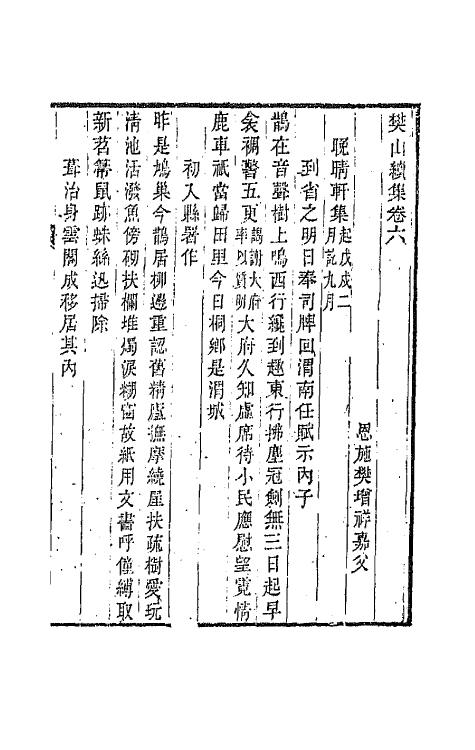 樊山續集卷六
恩施樊增祥嘉父
晚晴軒集起戊戌二月訖九月
到省之明日奉司牌回渭南任賦示內子
鵲在音聲樹上鳴西行纔到趣東行拂塵冠劍無三日起早
衾裯警五更謁謝大府率以質明大府久知虛席待小民應慰望霓情
鹿車祇當歸田里今日桐鄉是渭城
初入縣署作
昨是鳩巢今鵲居柳邊重認舊精廬撫摩繞屋扶疏樹愛玩
清池活潑魚傍砌扶欄堆燭淚糊窗故紙用文書呼僮縛取
新苕箒鼠跡蛛絲迅掃除
葺治身雲閣成移居其內